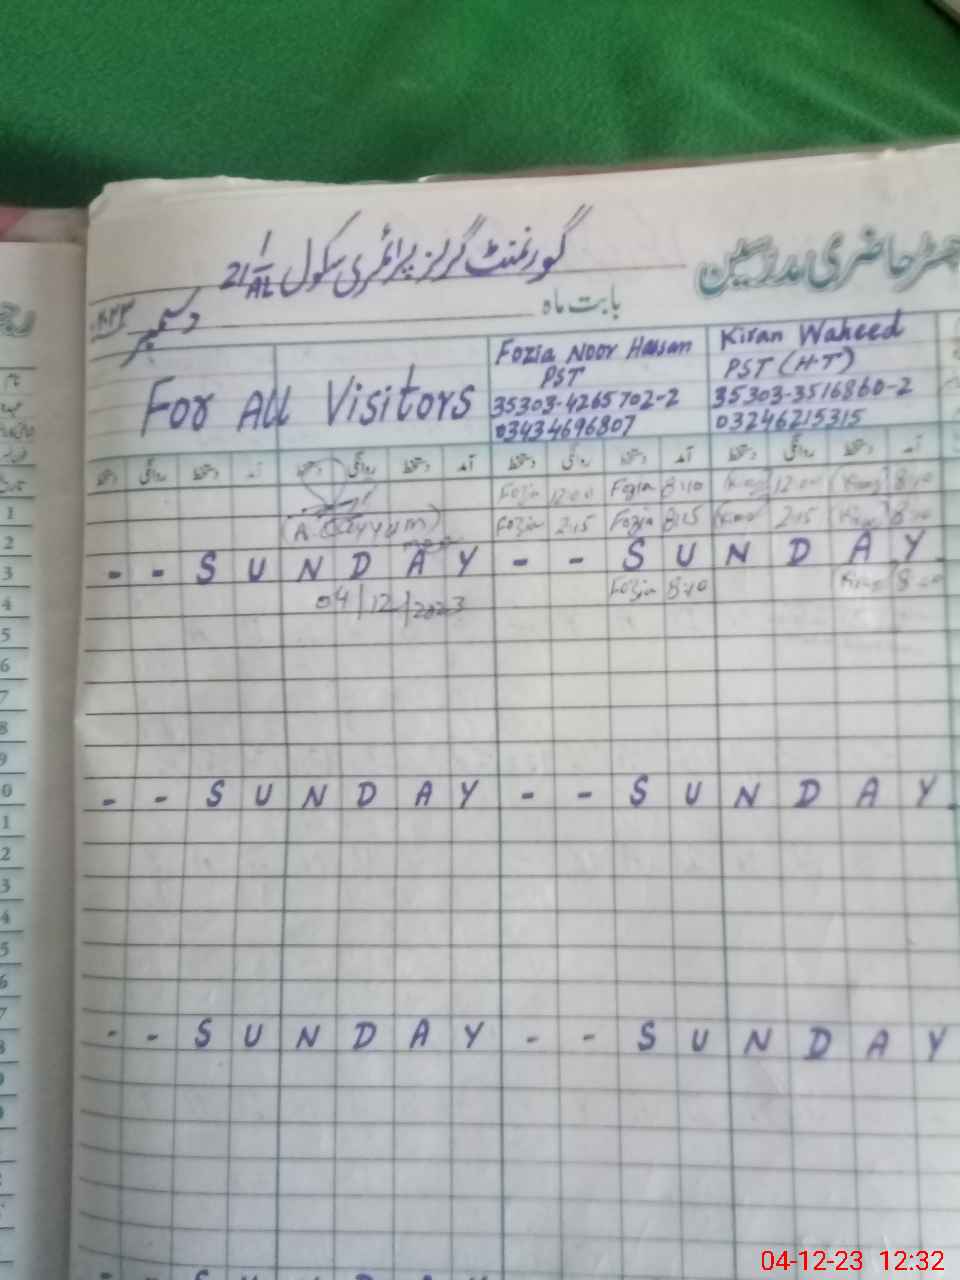 رجسٹر حاضری مدرسین
گورنمنٹ گرلز پرائمری سکول 21/1-AL
بابت ماہ دسمبر ۲۰۲۳
For All Visitors
Fozia Noor Hassan
PST
35303-4265702-2
03434696807
Kiran Waheed
PST (H.T)
35303-3516860-2
03246215315
دستخط روانگی دستخط آمد دستخط روانگی دستخط آمد دستخط روانگی دستخط آمد دستخط روانگی دستخط آمد
1 Fozia 12:00 Fozia 8:10 Kiran 12:00 Kiran 8:10
(A. Qayyum)
2 Fozia 2:15 Fozia 8:15 Kiran 2:15 Kiran 8:10
3 - - S U N D A Y - - S U N D A Y
4 04/12/2023 Fozia 8:10 Kiran 8:10
5
6
7
8
9
0 - - S U N D A Y - - S U N D A Y
1
2
3
4
5
6
7 - - S U N D A Y - - S U N D A Y
8
S U N D A Y
04-12-23 12:32